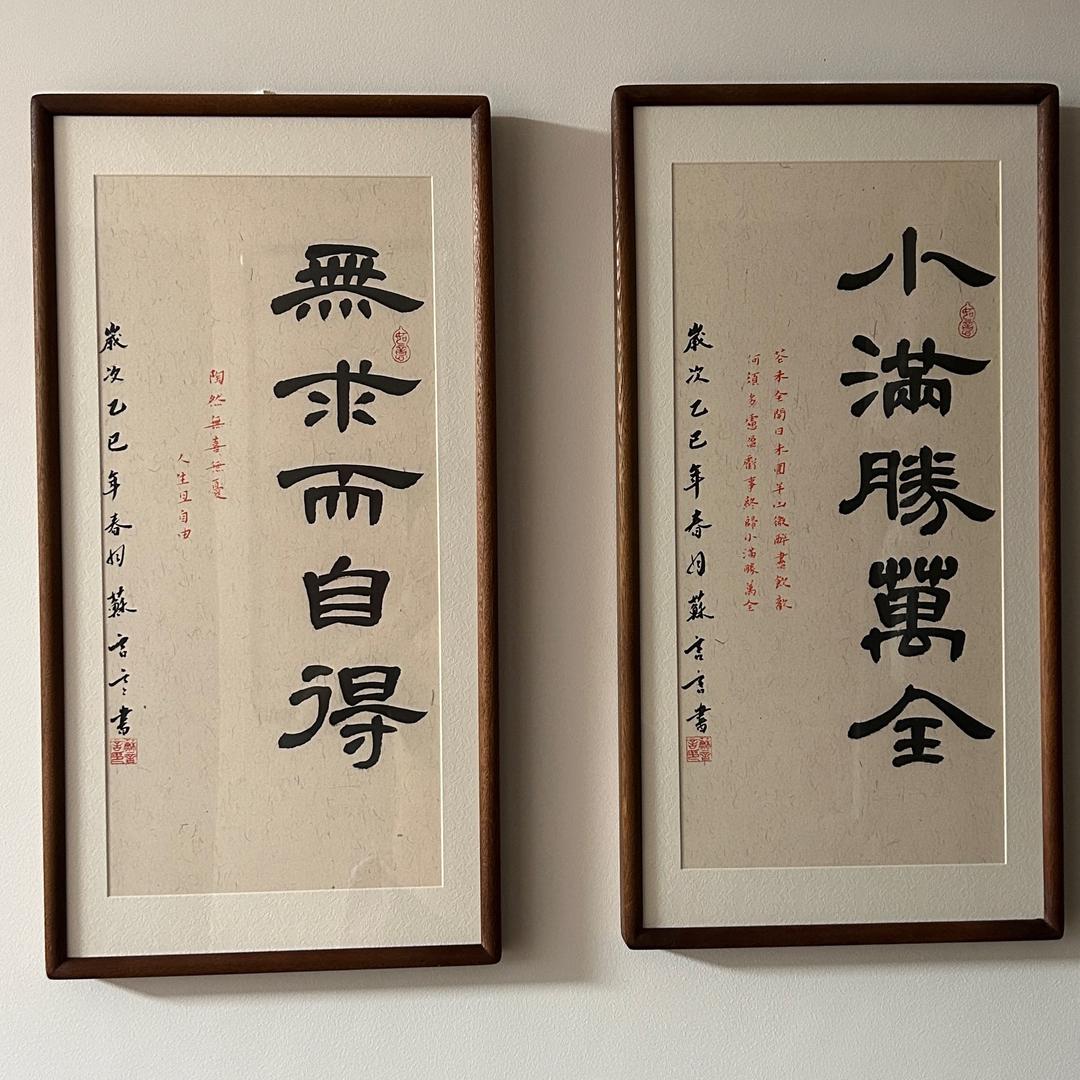 小滿勝萬全
花未全開月未圓半山微醉盡飲歡
何須多慮盈虧事終歸小滿勝萬全
歲次乙巳年春月蘇言言書
無求而自得
陶然無喜無憂
人生且自由
歲次乙巳年春月蘇言言書